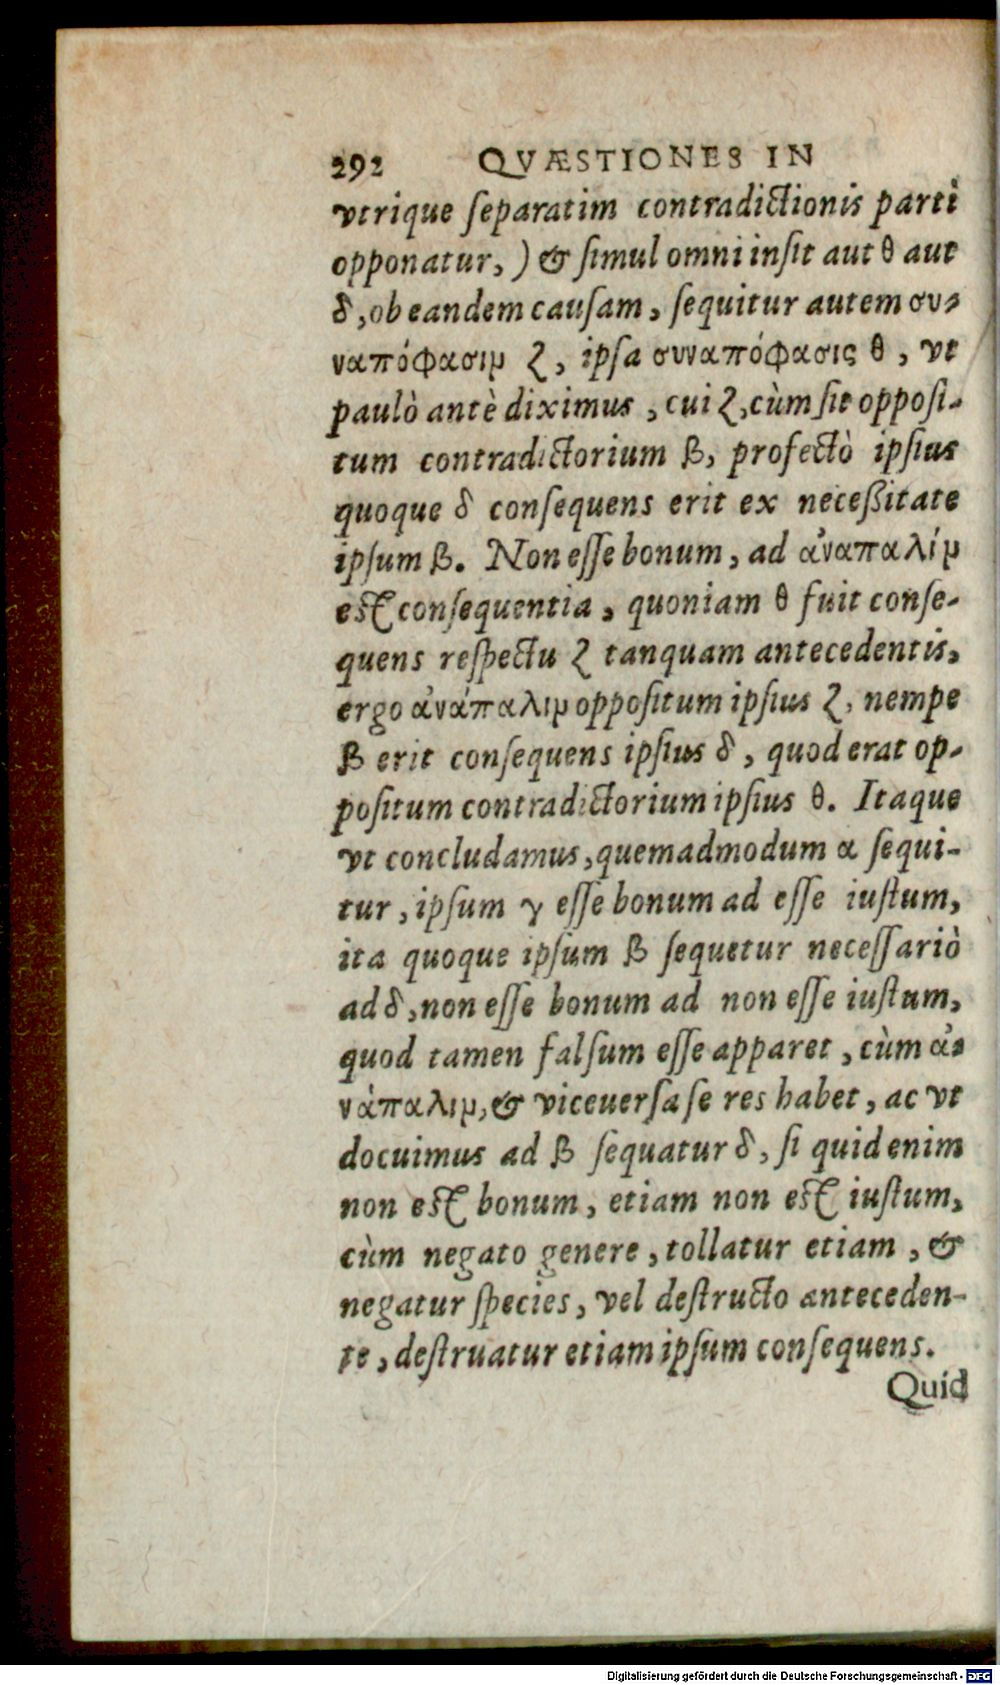 292 QVÆSTIONES IN
vtrique ſeparatim contradictionis parti
opponatur, ) & ſimul omni inſit aut θ aut
δ, ob eandem cauſam, ſequitur autem συ-
ναπόφασιμ ζ, ipſa συναπόφασις θ, vt
paulò antè diximus, cui ζ, cùm ſit oppoſi-
tum contradictorium β, profectò ipſius
quoque δ conſequens erit ex neceßitate
ipſum β. Non eſſe bonum, ad ἀναπαλίμ
eſt conſequentia, quoniam θ fuit conſe-
quens reſpectu ζ tanquam antecedentis,
ergo ἀνάπαλιμ oppoſitum ipſius ζ, nempe
β erit conſequens ipſius δ, quod erat op-
poſitum contradictorium ipſius θ. Itaque
vt concludamus, quemadmodum α ſequi-
tur, ipſum γ eſſe bonum ad eſſe iuſtum,
ita quoque ipſum β ſequetur neceſſariò
ad δ, non eſſe bonum ad non eſſe iuſtum,
quod tamen falſum eſſe apparet, cùm ἀ-
νάπαλιμ, & viceuerſa ſe res habet, ac vt
docuimus ad β ſequatur δ, ſi quid enim
non eſt bonum, etiam non eſt iuſtum,
cùm negato genere, tollatur etiam, &
negatur ſpecies, vel deſtructo anteceden-
te, deſtruatur etiam ipſum conſequens.
Quid
Digitalisierung gefördert durch die Deutsche Forschungsgemeinschaft - DFG